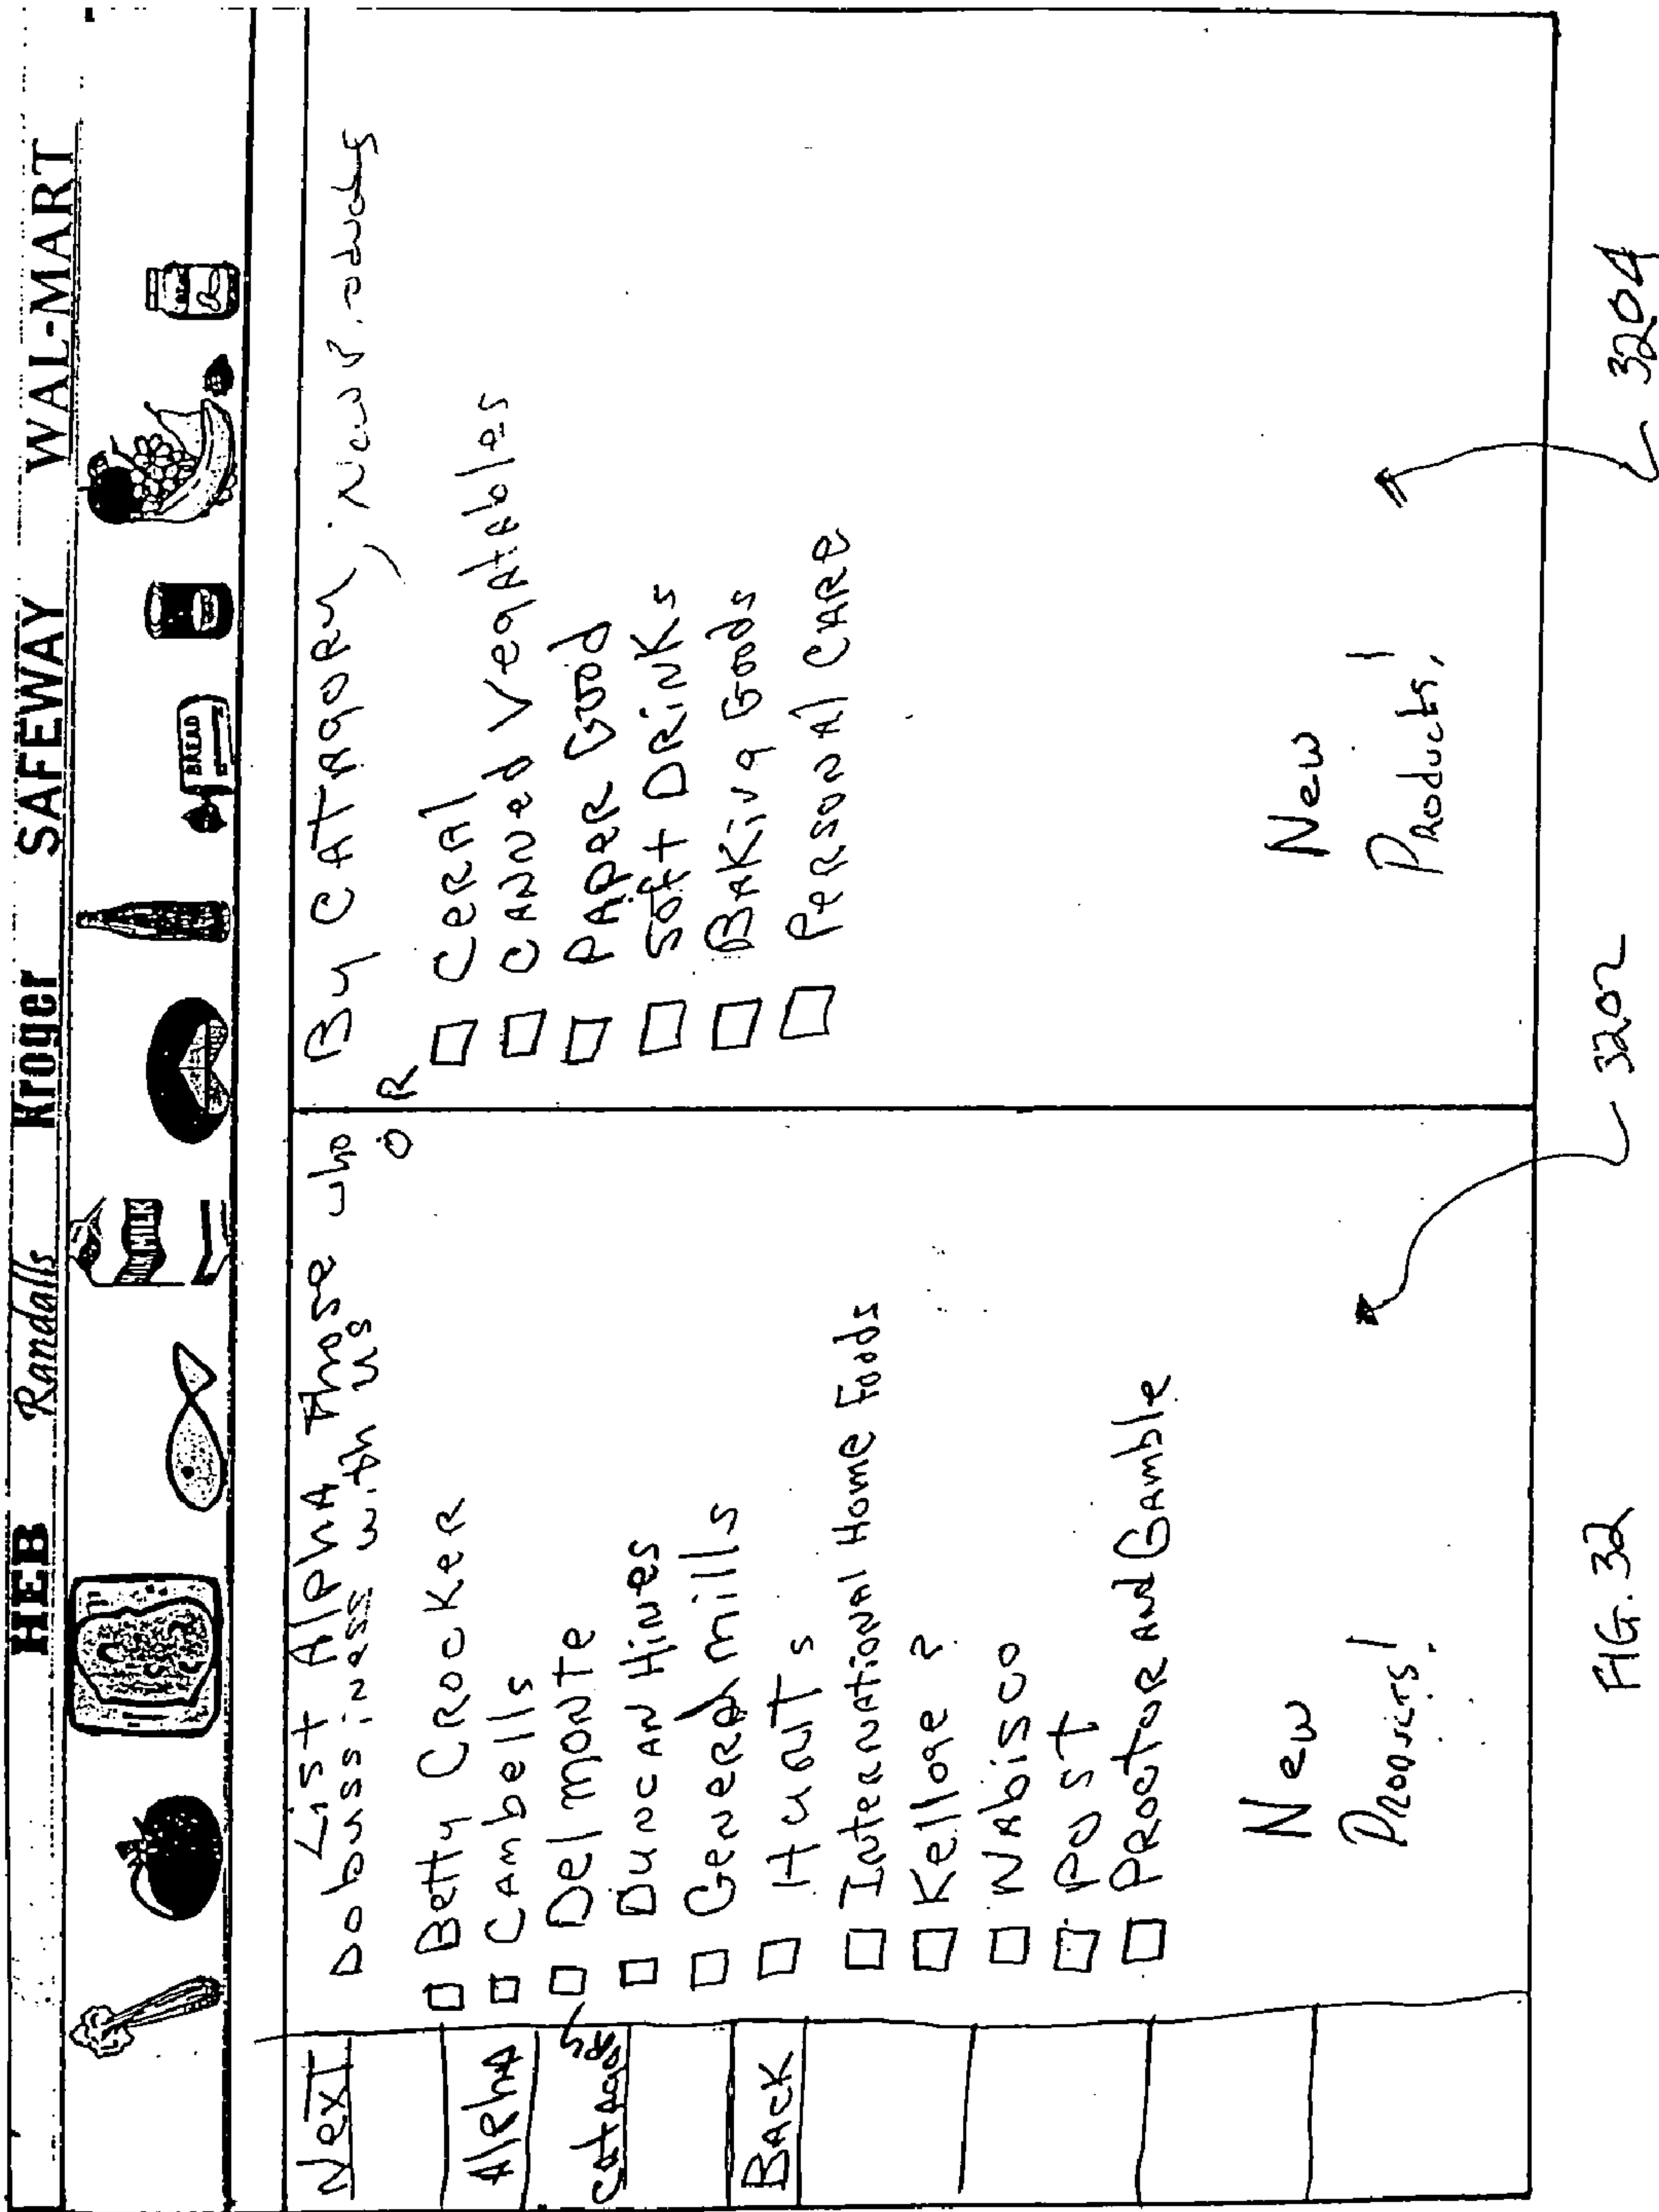 HEB Randalls Kroger SAFEWAY WAL-MART
MILK
BREAD
Next
Alpha
Catagory
Back
List Alpha those who
Do bussiness with us
Betty Crocker
Cambells
Del monte
Duncan Hines
General mills
Hunts
International Home Foods
Kelloge ?
Nabisco
Post
Proctor and Gamble
New
Products!
OR
By Catagory, New
Ceral
Canned Vegatables
Paper Good
Soft Drinks
Baking Goods
Personal Care
New
Products!
3202
3204
FIG. 32